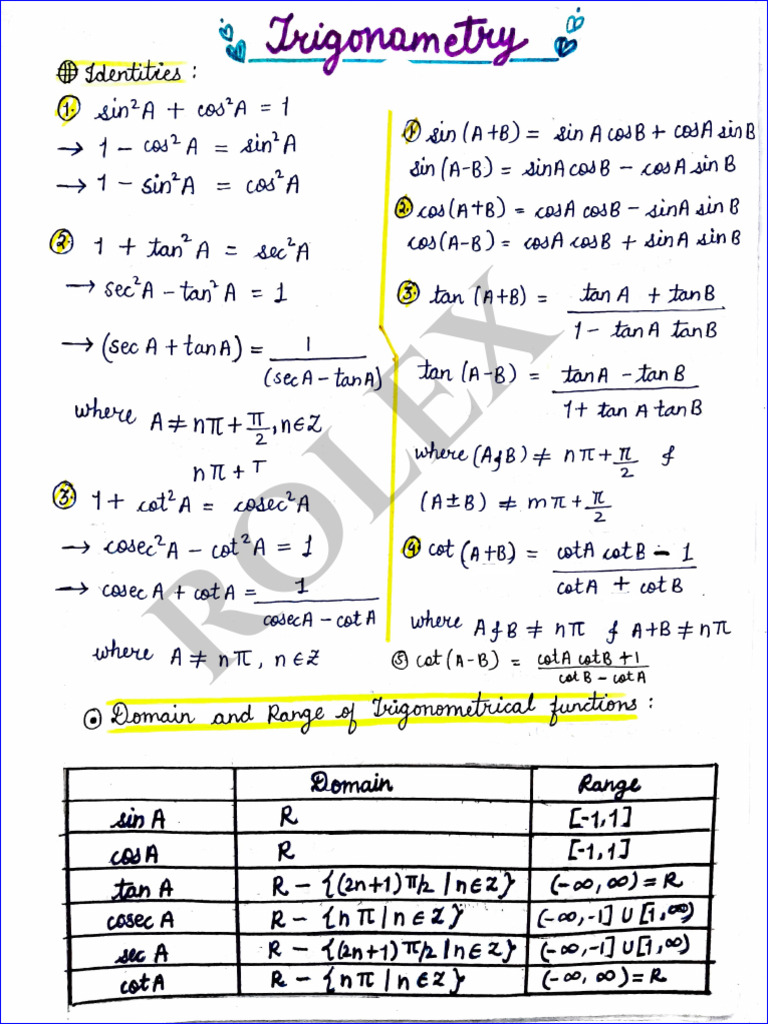 Trigonametry
Identities :
1. sin²A + cos²A = 1
→ 1 - cos²A = sin²A
→ 1 - sin²A = cos²A
2. 1 + tan²A = sec²A
→ sec²A - tan²A = 1
→ (secA + tanA) = 1 / (secA - tanA)
where A ≠ nπ + π/2, n ∈ Z
nπ + T
3. 1 + cot²A = cosec²A
→ cosec²A - cot²A = 1
→ cosecA + cotA = 1 / cosecA - cotA
where A ≠ nπ, n ∈ Z
1. sin(A+B) = sinA cosB + cosA sinB
sin(A-B) = sinA cosB - cosA sinB
2. cos(A+B) = cosA cosB - sinA sinB
cos(A-B) = cosA cosB + sinA sinB
3. tan(A+B) = tanA + tanB / 1 - tanA tanB
tan(A-B) = tanA - tanB / 1 + tanA tanB
where (A & B) ≠ nπ + π/2 &
(A ± B) ≠ mπ + π/2
4. cot(A+B) = cotA cotB - 1 / cotA + cotB
where A & B ≠ nπ & A+B ≠ nπ
5 cot(A-B) = cotA cotB + 1 / cotB - cotA
ROLEX
Domain and Range of Trigonometrical functions :
Domain Range
sinA R [-1,1]
cosA R [-1,1]
tanA R - {(2n+1)π/2 | n∈Z} (-∞,∞) = R
cosecA R - {nπ | n∈Z} (-∞,-1] U [1,∞)
secA R - {(2n+1)π/2 | n∈Z} (-∞,-1] U [1,∞)
cotA R - {nπ | n∈Z} (-∞,∞) = R